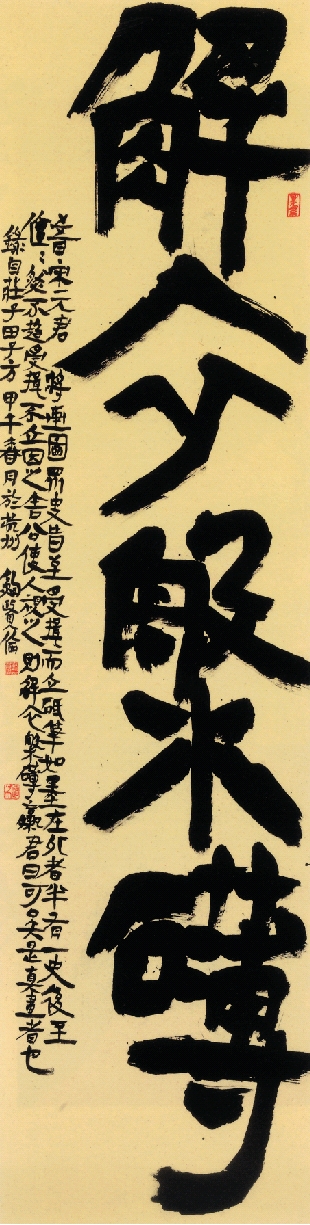 解衣般礴
昔宋元君將畫圖眾史皆至受揖而立舐筆和墨在外者半有一史後至
儃儃然不趨受揖不立因之舍公使人視之則解衣槃礴裸君曰可矣是真畫者也
錄自莊子田子方 甲午春月於杭州